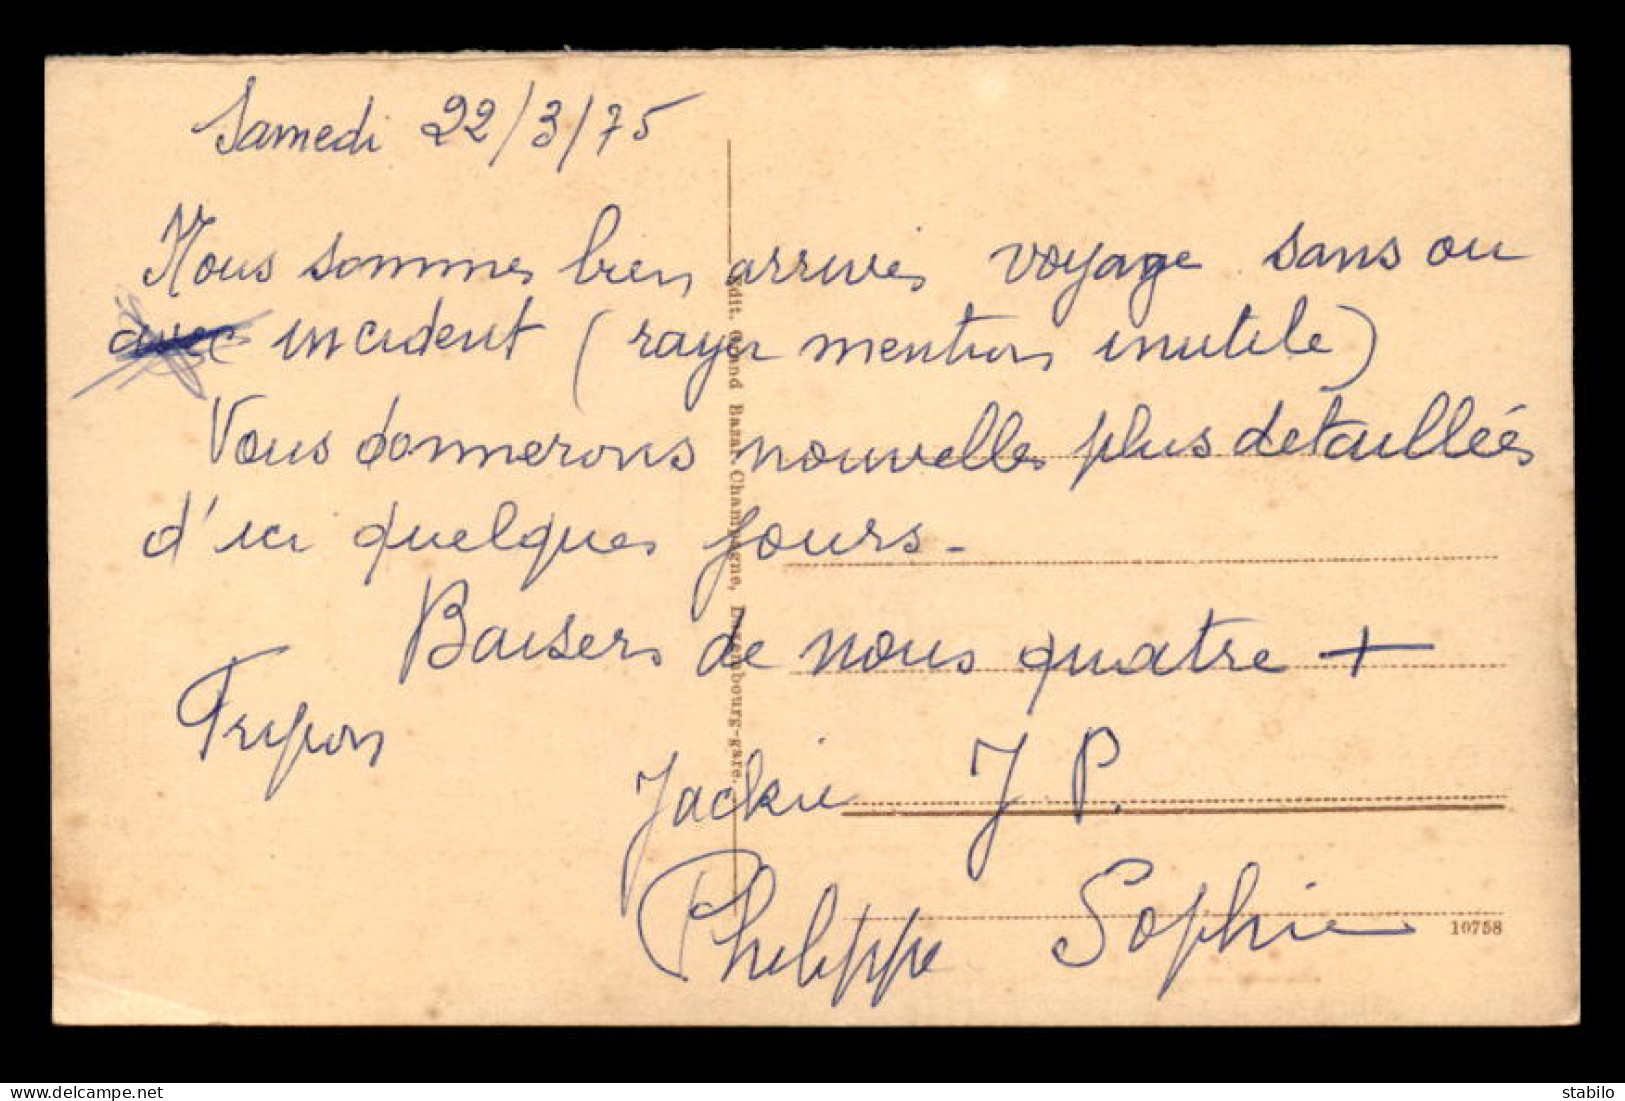 Samedi 22/3/75
Nous sommes bien arrivés voyage sans ou
avec incident (rayer mention inutile)
Vous donnerons nouvelles plus détaillées
d'ici quelques jours.
Baisers de nous quatre +
Fripon
Jackie J P.
Philippe Sophie
Edit. Grand Bazar Champagne, Luxembourg-gare.
10758
delcampe.net
stabilo